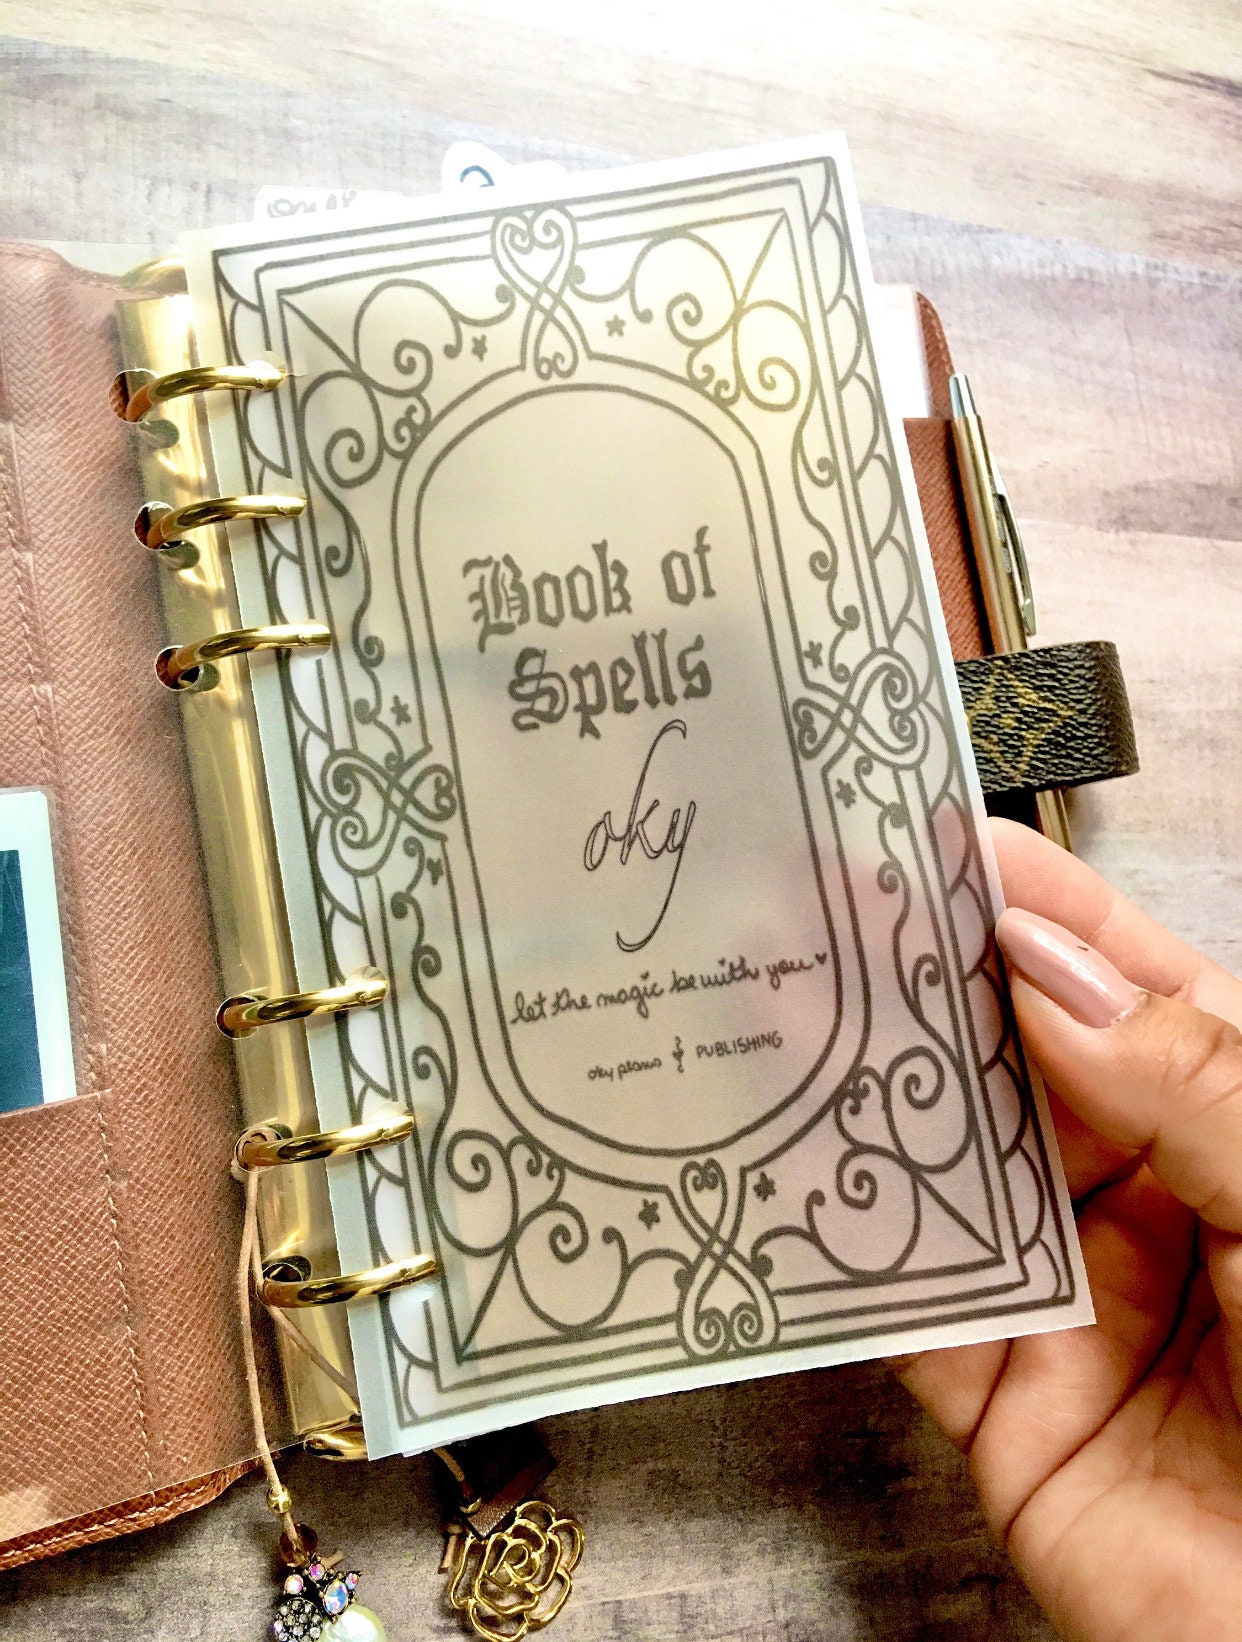 Book of
Spells
oky
let the magic be with you
oky plans & PUBLISHING